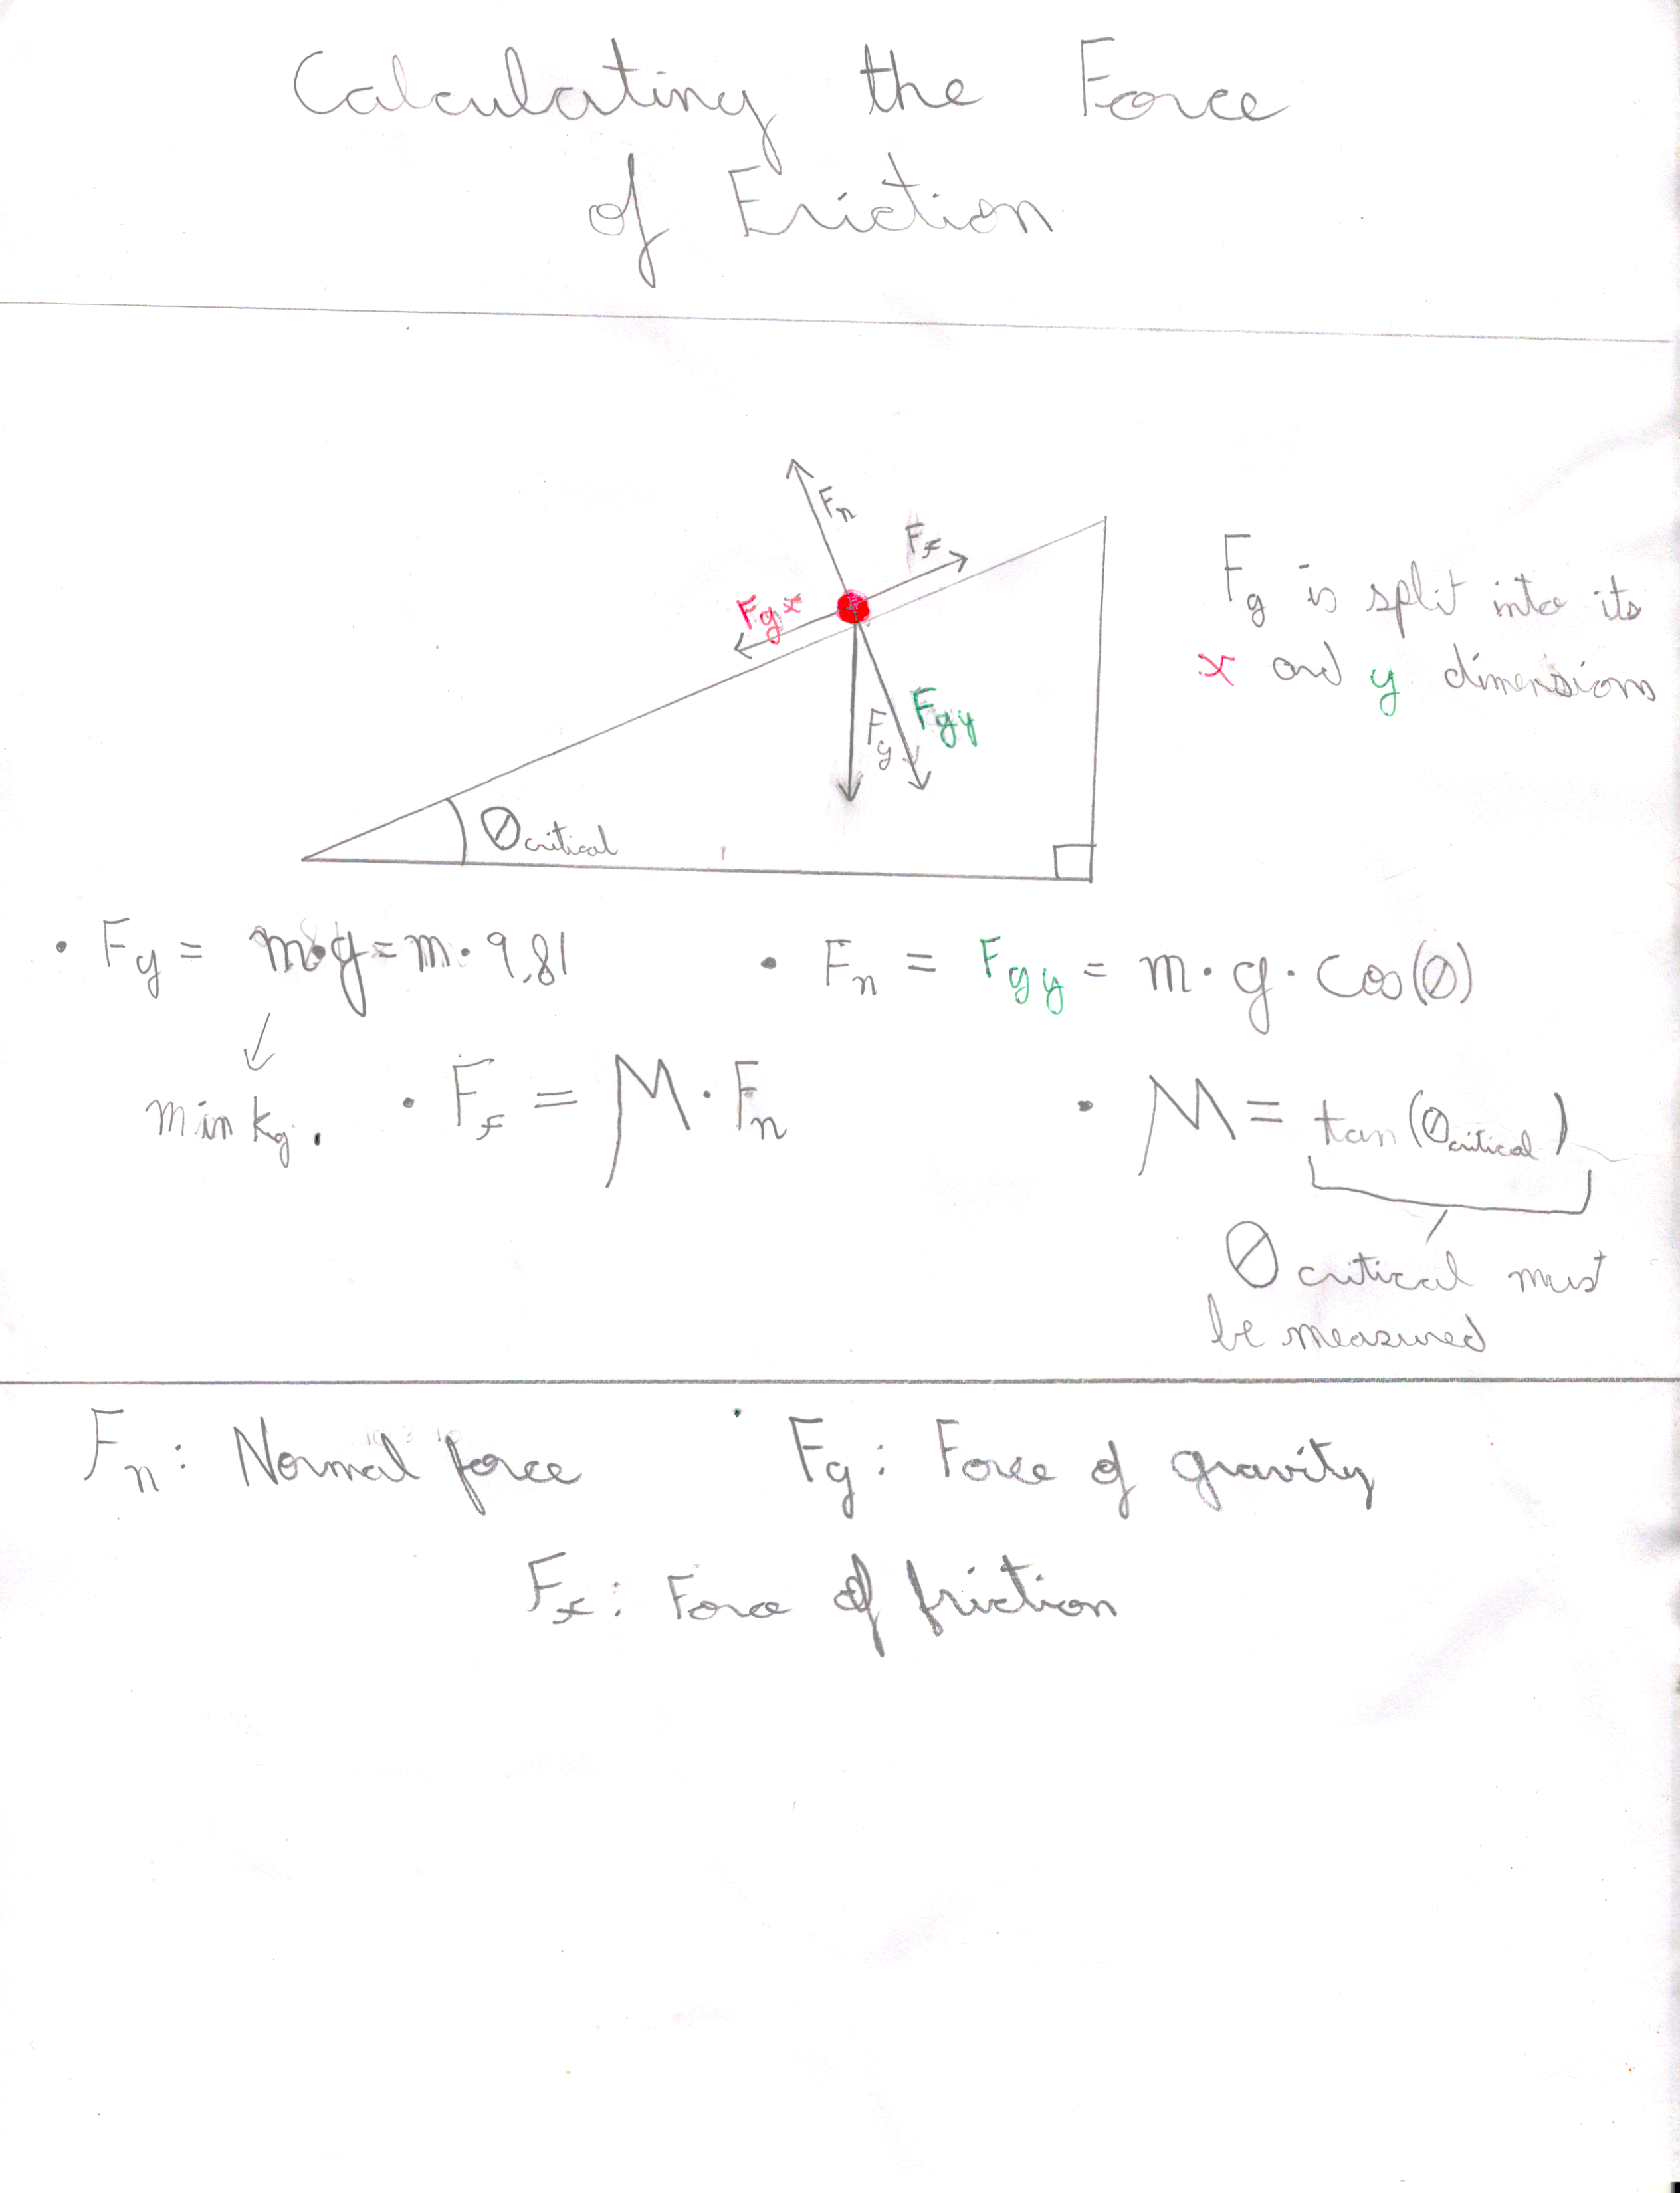 Calculating the Force
of Friction
Fn
Ff
Fgx
Fg
Fgy
θcritical
Fg is split into its
x and y dimensions
• Fg = m·g = m·9.81
• Fn = Fgy = m·g·cos(θ)
m in kg.
• Ff = μ·Fn
• μ = tan(θcritical)
θcritical must
be measured
Fn: Normal force
Fg: Force of gravity
Ff: Force of friction